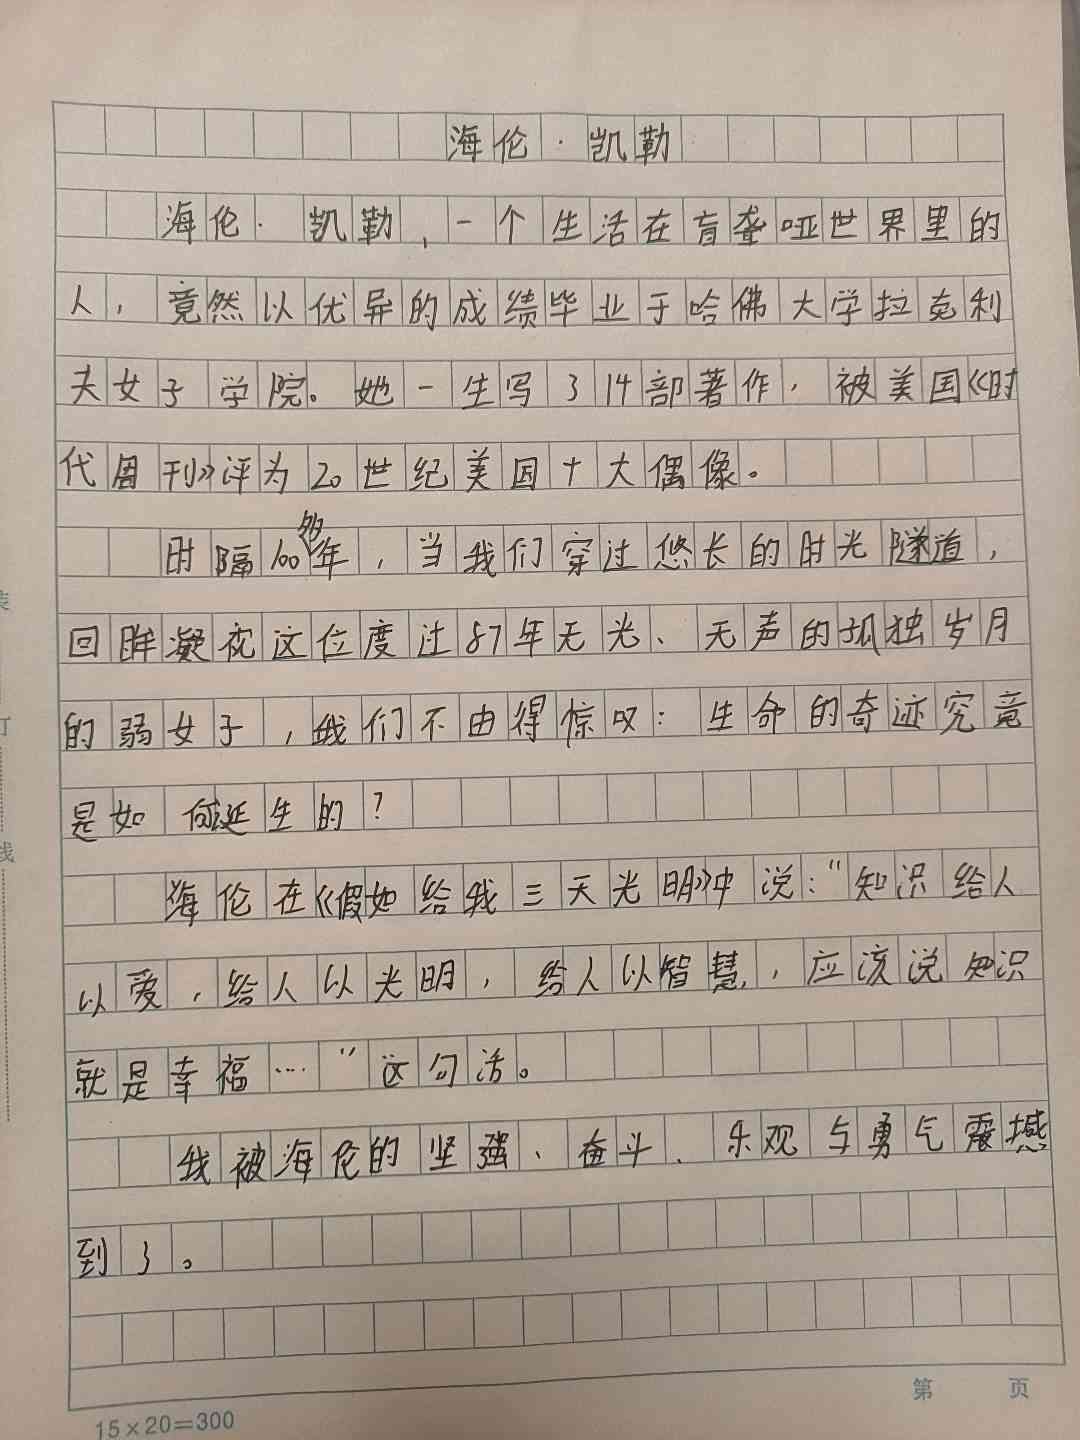 海伦·凯勒
海伦·凯勒,一个生活在盲聋哑世界里的
人,竟然以优异的成绩毕业于哈佛大学拉克利
夫女子学院。她一生写了14部著作,被美国《时
代周刊》评为20世纪美国十大偶像。
时隔100多年,当我们穿过悠长的时光隧道,
回眸凝视这位度过87年无光、无声的孤独岁月
的弱女子,我们不由得惊叹:生命的奇迹究竟
是如何诞生的?
海伦在《假如给我三天光明》中说:"知识给人
以爱,给人以光明,给人以智慧,应该说知识
就是幸福…"这句话。
我被海伦的坚强、奋斗、乐观与勇气震撼
到了。
15×20=300
第 页
装
订
线